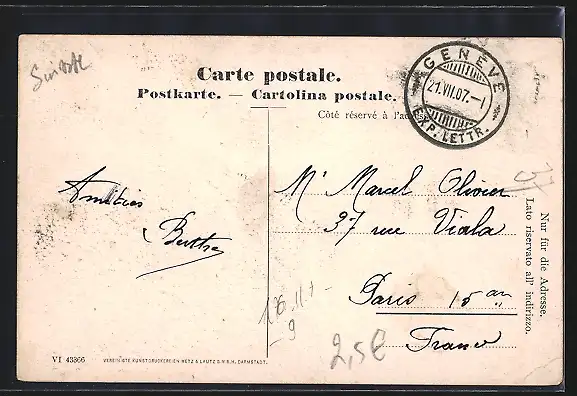 Carte postale.
Postkarte. — Cartolina postale.
Côté réservé à l'adresse
GENÈVE
21.VII.07.–1
EXP. LETTR.
Amitiés
Berthe
Mr Marcel Olivier
37 rue Viala
Paris 15 arr
France
37
Nur für die Adresse.
Lato riservato all' indirizzo.
2,5€
VI 43366
VEREINIGTE KUNSTDRUCKEREIEN METZ & LAUTZ G.M.B.H. DARMSTADT.